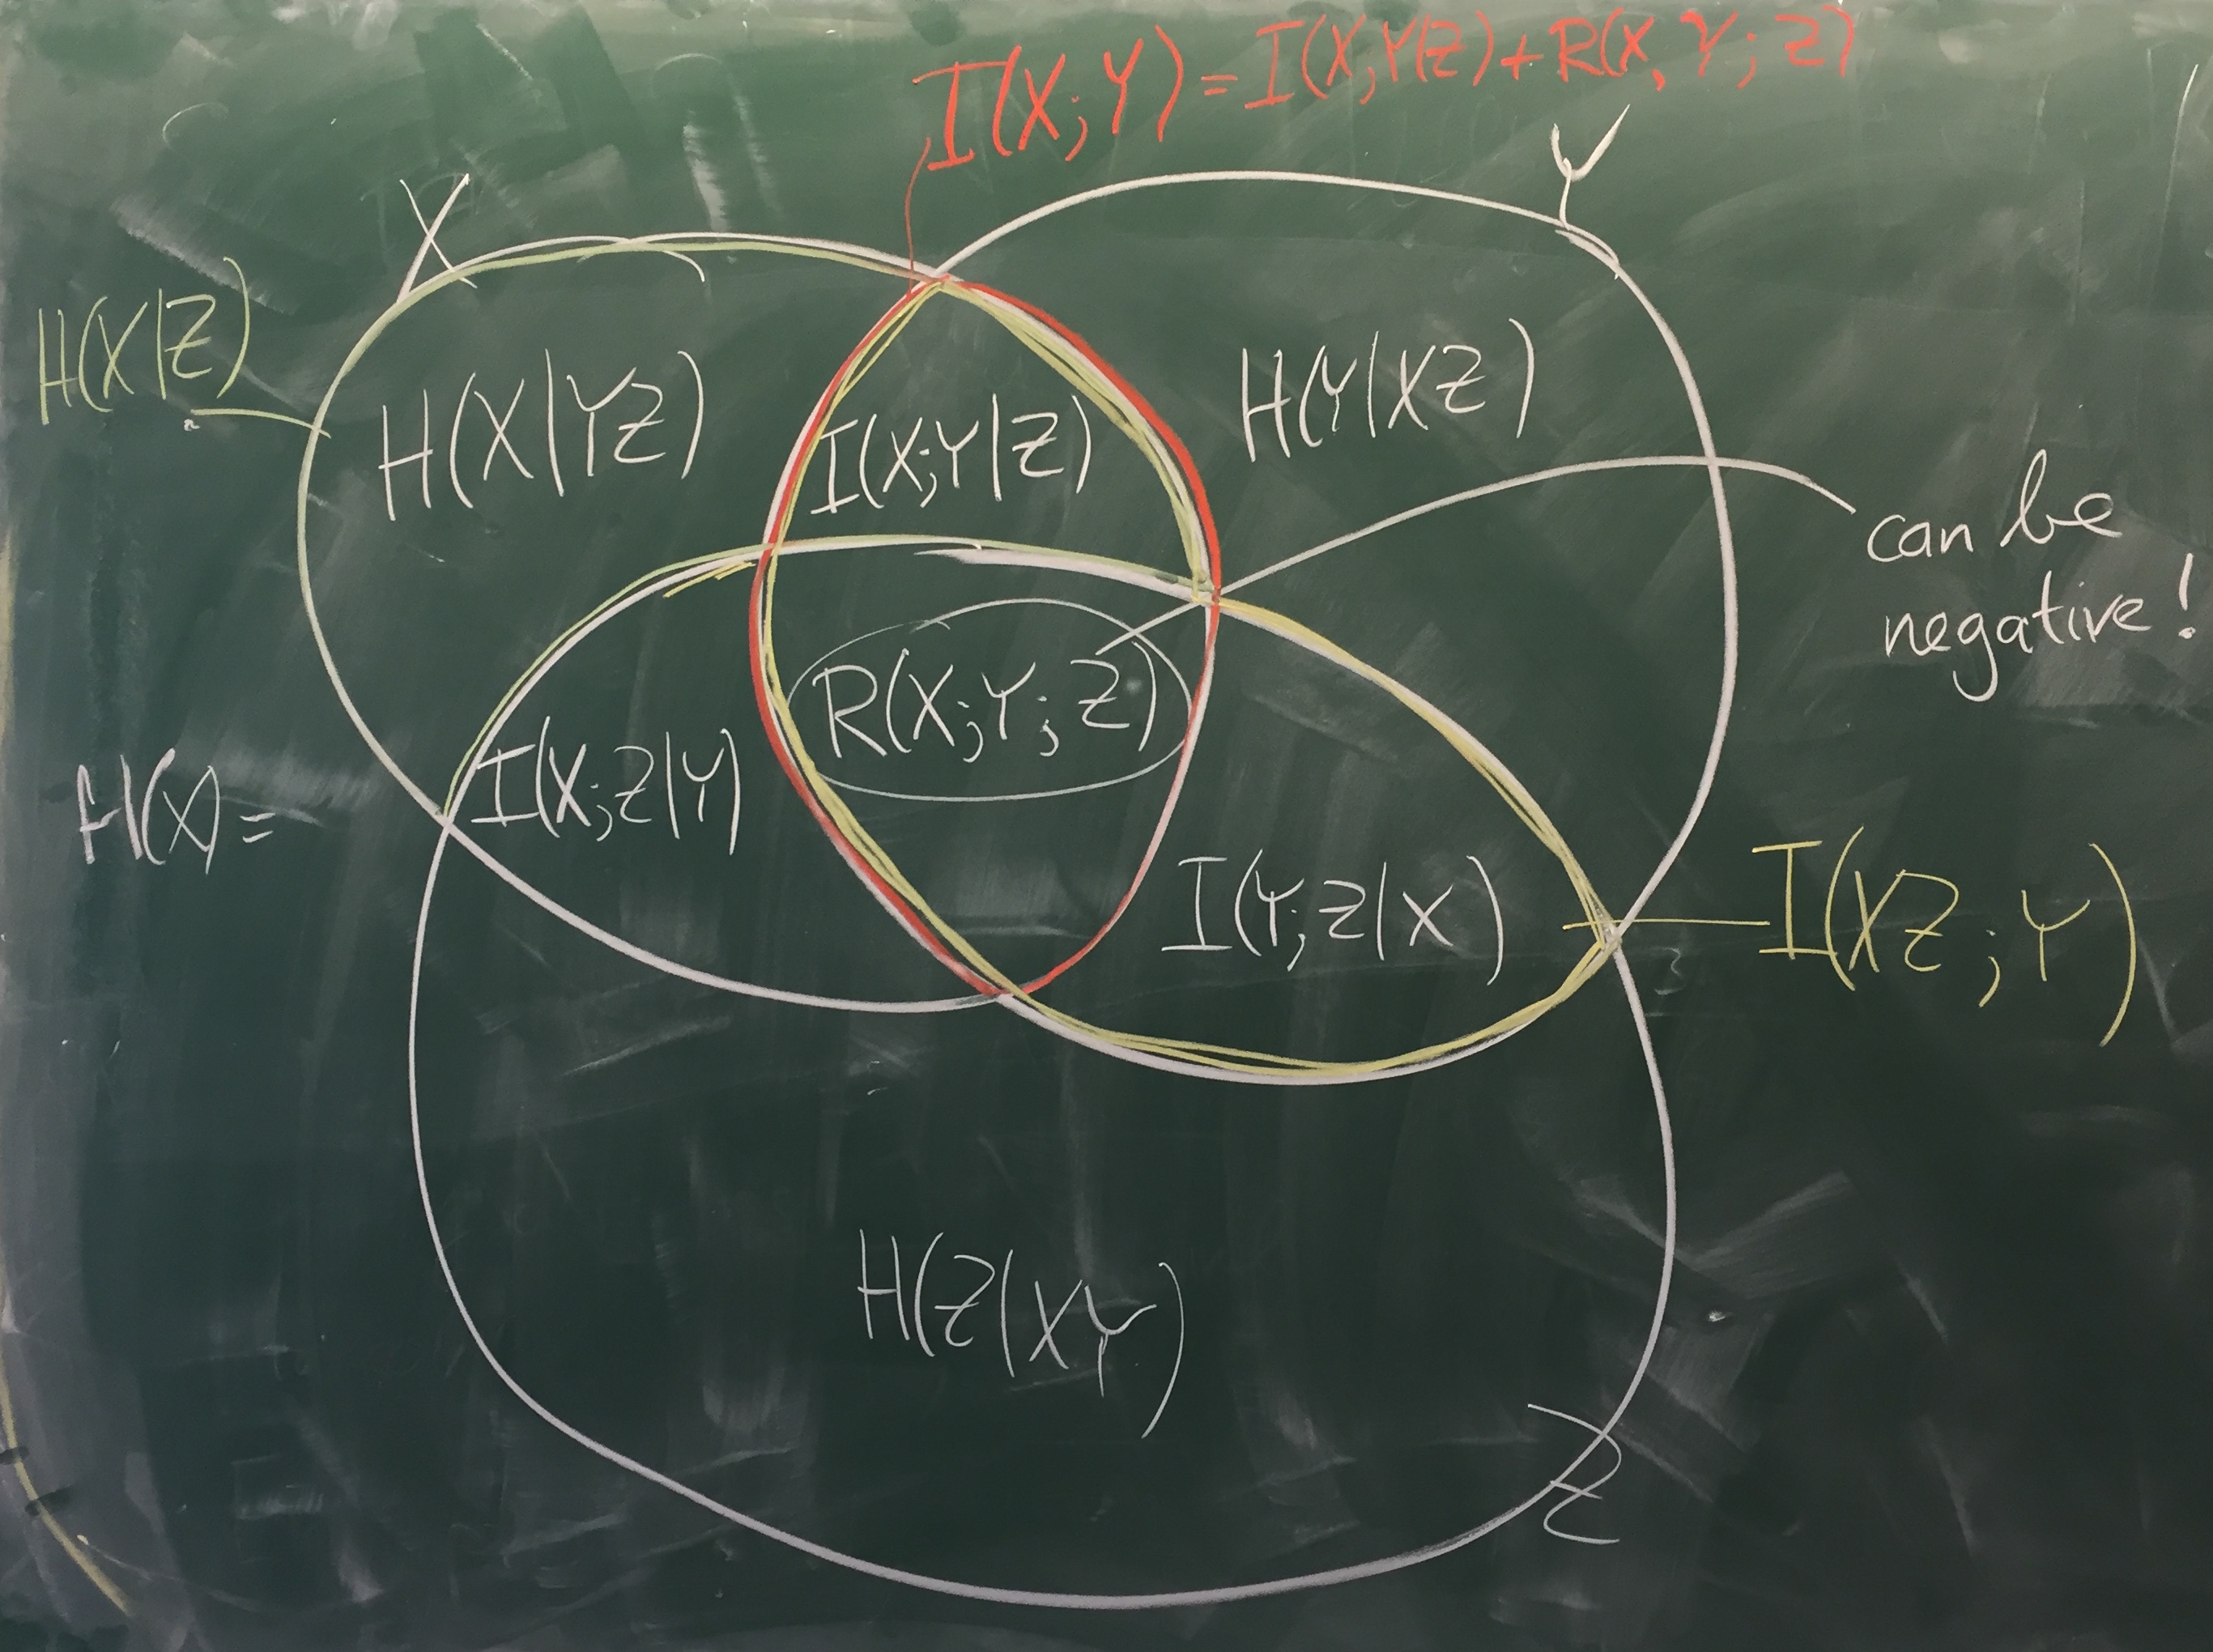 I(X;Y) = I(X;Y|Z) + R(X,Y;Z)
X
Y
H(X|Z)
H(X|YZ)
I(X;Y|Z)
H(Y|XZ)
can be
negative!
R(X;Y;Z)
I(X;Z|Y)
H(X) =
I(Y;Z|X)
I(XZ;Y)
H(Z|XY)
Z